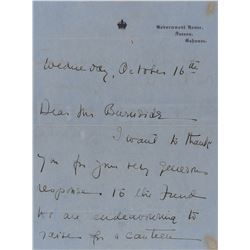 Government House,
Nassau,
Bahamas.
Wednesday, October 16th
Dear Mr Burnside
I want to thank
you for your very generous
response to the Fund
we are endeavouring to
raise for a canteen